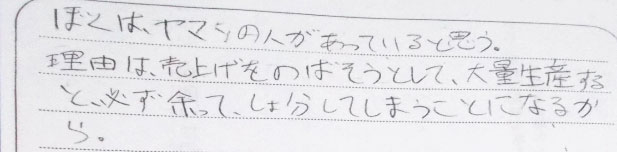 ぼくは、ヤマシの人があっていると思う。
理由は、売上げをのばそうとして、大量生産する
と、必ず余って、しょ分してしまうことになるか
ら。